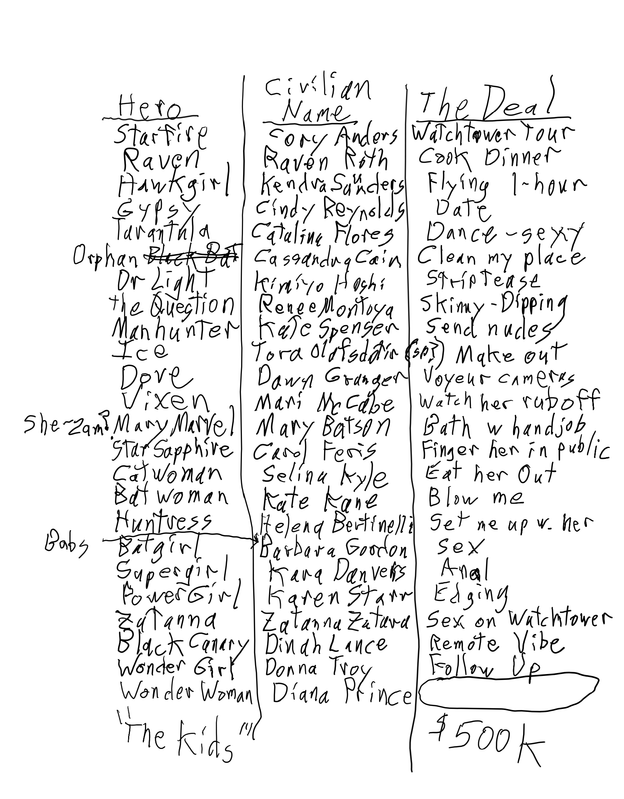 Hero | Civilian Name | The Deal
Starfire | Cory Anders | Watchtower Tour
Raven | Raven Roth | Cook Dinner
Hawkgirl | Kendra Saunders | Flying 1-hour
Gypsy | Cindy Reynolds | Date
Tarantula | Catalina Flores | Dance - sexy
Orphan Black Bat | Cassandra Cain | Clean my place
Dr Light | Kimiyo Hoshi | Striptease
the Question | Renee Montoya | Skinny-Dipping
Manhunter | Kate Spenser | Send nudes
Ice | Tora Olafsdotir (sp?) | Make out
Dove | Dawn Granger | Voyeur cameras
Vixen | Mari McCabe | Watch her rub off
She-Zam? Mary Marvel | Mary Batson | Bath w handjob
Star Sapphire | Carol Feris | Finger her in public
Catwoman | Selina Kyle | Eat her Out
Batwoman | Kate Kane | Blow me
Huntress | Helena Bertinelli | Set me up w. her
Babs Batgirl | Barbara Goordon | Sex
Supergirl | Kara Danvers | Anal
PowerGirl | Karen Starr | Edging
Zatanna | Zatanna Zatara | Sex on Watchtower
Black Canary | Dinah Lance | Remote Vibe
Wonder Girl | Donna Troy | Follow Up
Wonder Woman | Diana Prince
"The Kids" | $500K